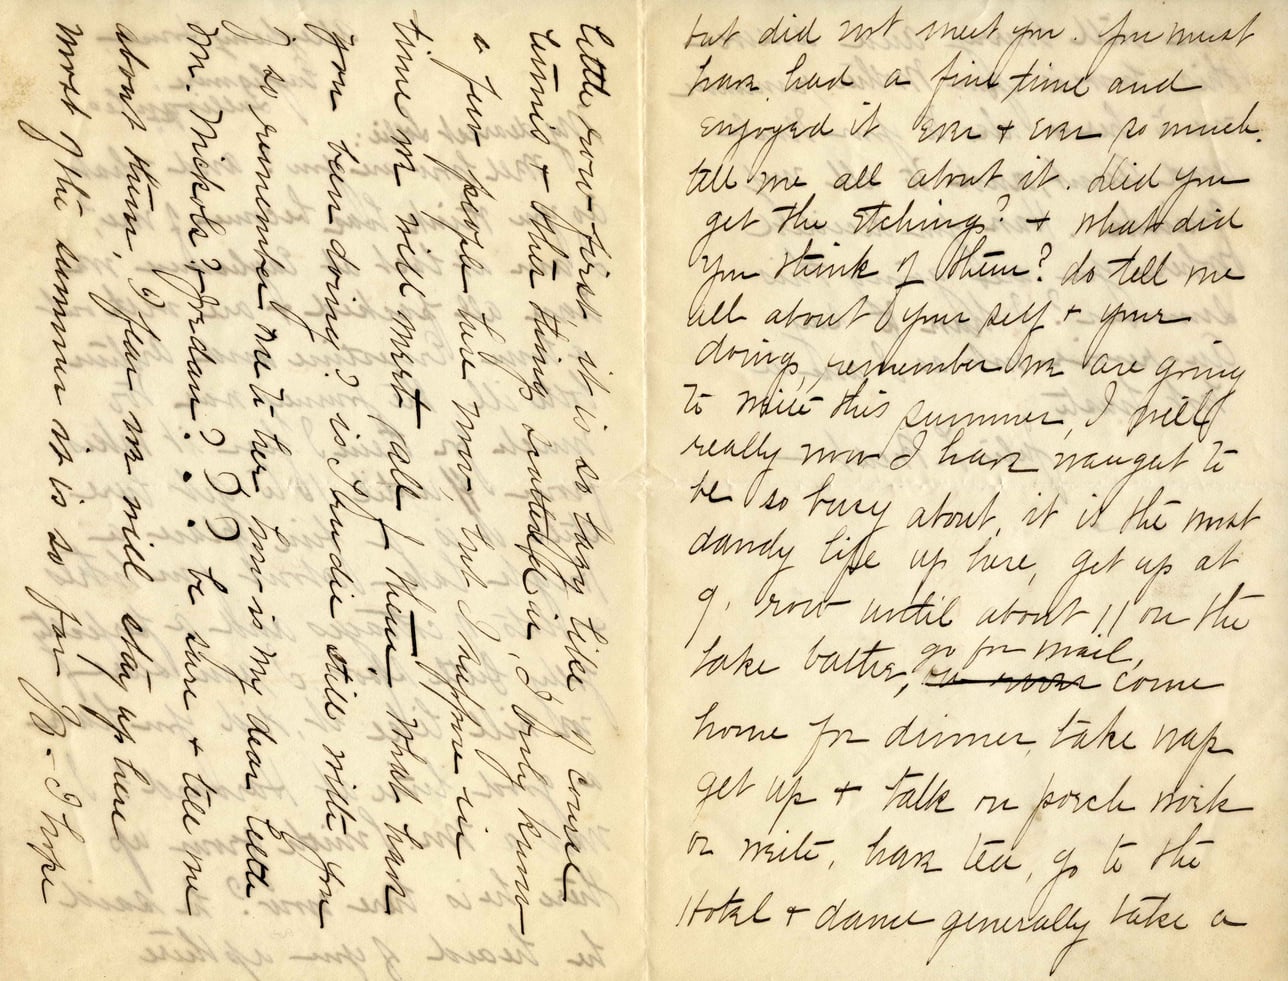 but did not meet you. You must
have had a fine time and
enjoyed it ever & ever so much.
tell me all about it. Did you
get the etchings? & what did
you think of them? do tell me
all about your self & your
doings, remember we are going
to write this summer, I will
really now I have naught to
be so busy about, it is the most
dandy life up here, get up at
9, row until about 11 on the
lake bathe, go for mail, come
home for dinner, take nap
get up & talk on porch work
or write, have tea, go to the
Hotel & dance generally take a
little row first, it is so lazy like, of course
tennis & other things scattered in, I only know
a few people here now, but I suppose in
time we will meet all of them. What have
you been doing? is Trudie still with you
if so remember me to her how is my dear little
Mr. Nichols? Jordan? ? ? ? be sure & tell me
about them, I fear we will stay up here
most of the summer it is so far B. - I hope